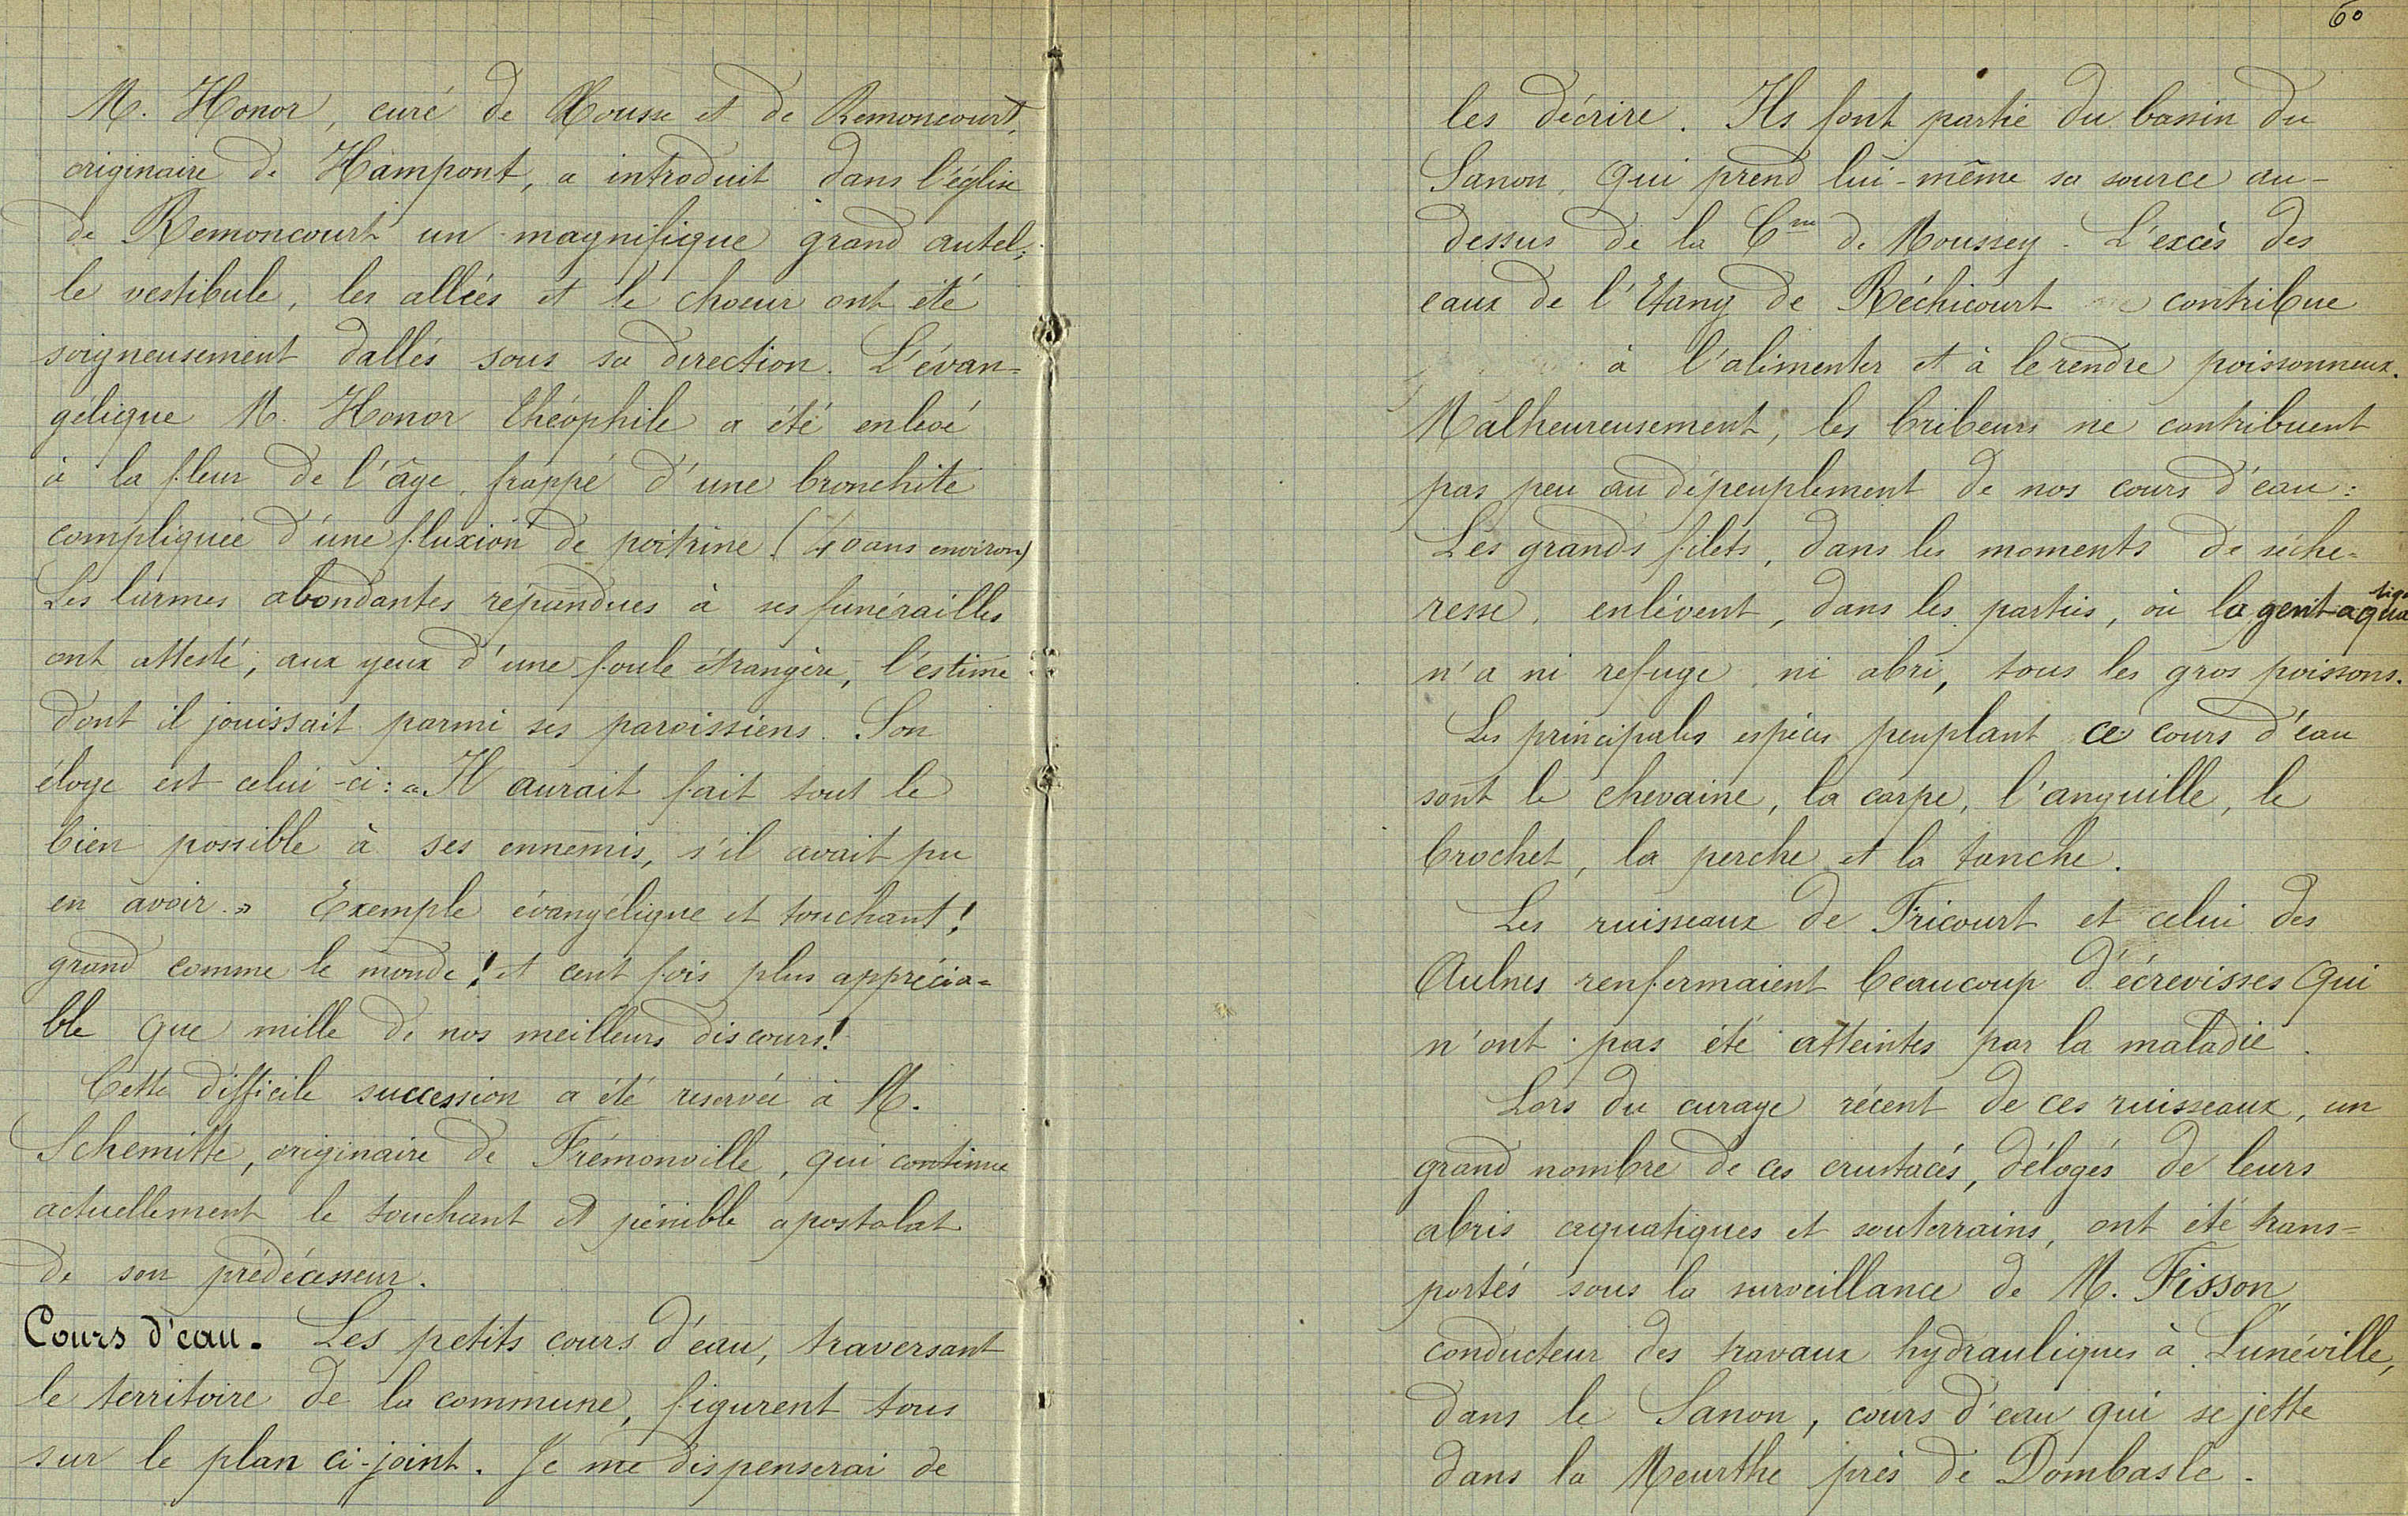 M. Honor, curé de Xousse et de Remoncourt,
originaire de Hampont, a introduit dans l'église
de Remoncourt un magnifique grand autel;
le vestibule, les allées et le choeur ont été
soigneusement dallés sous sa direction. L'évan-
gélique M. Honor Théophile a été enlevé
à la fleur de l'âge, frappé d'une bronchite
compliquée d'une fluxion de poitrine (40 ans environ)
Les larmes abondantes répandues à ses funérailles
ont attesté, aux yeux d'une foule étrangère, l'estime
dont il jouissait parmi ses paroissiens. Son
éloge est celui-ci: « Il aurait fait tout le
bien possible à ses ennemis, s'il avait pu
en avoir. » Exemple évangélique et touchant!
grand comme le monde! et cent fois plus apprécia-
ble que mille de nos meilleurs discours!
Cette difficile succession a été reservée à M.
Schemitte, originaire de Frémonville, qui continue
actuellement le touchant et pénible apostolat
de son prédécesseur.
Cours d'eau. Les petits cours d'eau, traversant
le territoire de la commune, figurent tous
sur le plan ci-joint. Je me dispenserai de
60
les décrire. Ils font partie du bassin du
Sanon, qui prend lui-même sa source au-
dessus de la Cne de Moussey. L'excès des
eaux de l'Etang de Réchicourt contribue
à l'alimenter et à le rendre poissonneux.
Malheureusement, les bribeurs ne contribuent
pas peu au dépeuplement de nos cours d'eau:
Les grands filets, dans les moments de séche-
resse, enlèvent, dans les parties, où la gent aquatique
n'a ni refuge ni abri, tous les gros poissons.
Les principales espèces peuplant ce cours d'eau
sont le chevaine, la carpe, l'anguille, le
brochet, la perche et la tanche.
Les ruisseaux de Fricourt et celui des
Aulnes renfermaient beaucoup d'écrevisses qui
n'ont pas été atteintes par la maladie.
Lors du curage récent de ces ruisseaux, un
grand nombre de ces crustacés, délogés de leurs
abris aquatiques et souterrains, ont été trans-
portés sous la surveillance de M. Fisson,
conducteur des travaux hydrauliques à Lunéville,
dans le Sanon, cours d'eau qui se jette
dans la Meurthe près de Dombasle.